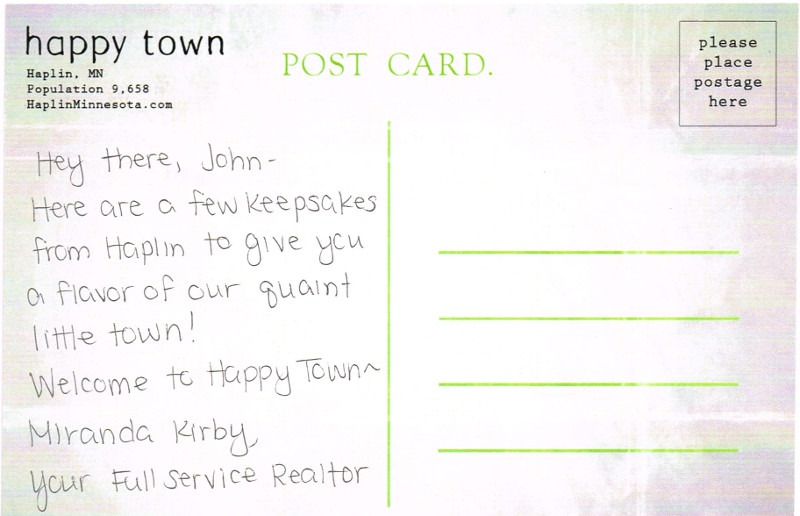 happy town
Haplin, MN
Population 9,658
HaplinMinnesota.com
POST CARD.
please
place
postage
here
Hey there, John-
Here are a few keepsakes
from Haplin to give you
a flavor of our quaint
little town!
Welcome to Happy Town~
Miranda Kirby,
Your Full Service Realtor